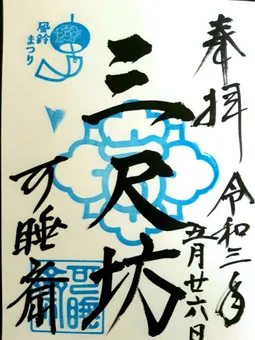 奉拝
令和三年
五月廿六日
三尺坊
風鈴
まつり
可睡斎
可睡
斎